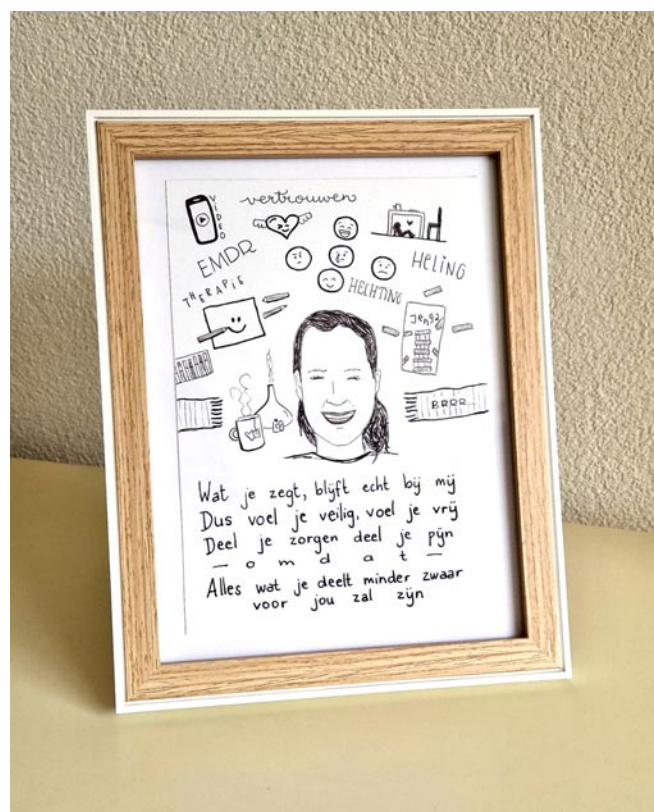 VIDEO
vertrouwen
EMDR
HELING
THERAPIE
HECHTING
Jenga
BRRR...
Wat je zegt, blijft echt bij mij
Dus voel je veilig, voel je vrij
Deel je zorgen deel je pijn
— o m d a t —
Alles wat je deelt minder zwaar
voor jou zal zijn